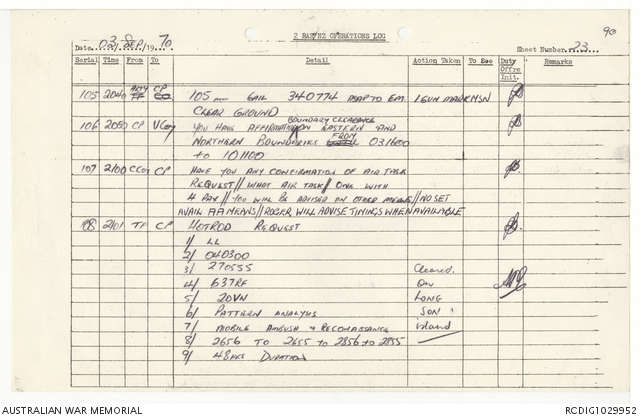 90
2 RAR/NZ OPERATIONS LOG
Date 03 SEP 1970
Sheet Number 23
Serial Time From To Detail Action Taken To See Duty Offrs Init. Remarks
105 2040 ARTY CP 105mm GAIL 340774 ASAP TO EM 1 GUN MARKMSN
CLEAR GROUND
BOUNDARY CLEARANCE
106 2050 CP VCoy YOU HAVE ON EASTERN AND
NORTHERN BOUNDARIES FROM 031600
to 101100
107 2100 CCoy CP HAVE YOU ANY CONFIRMATION OF AIR TASK
REQUEST // WHAT AIR TASK // ONE WITH
4 PAX // YOU WILL BE ADVISED ON OTHER MEANS // NO SET
AVAIL AA MEANS // ROGER WILL ADVISE TIMINGS WHEN AVAILABLE
108 2101 TF CP HOTROD REQUEST
1/ LL
2/ 040300
3/ 270555 Cleared
4/ 637RF On
5/ 20VN LONG
6/ PATTERN ANALYSIS SON
7/ MOBILE AMBUSH & RECONNAISSANCE island
8/ 2656 TO 2655 to 2856 to 2855
9/ 48HRS DURATION
AUSTRALIAN WAR MEMORIAL
RCDIG1029952